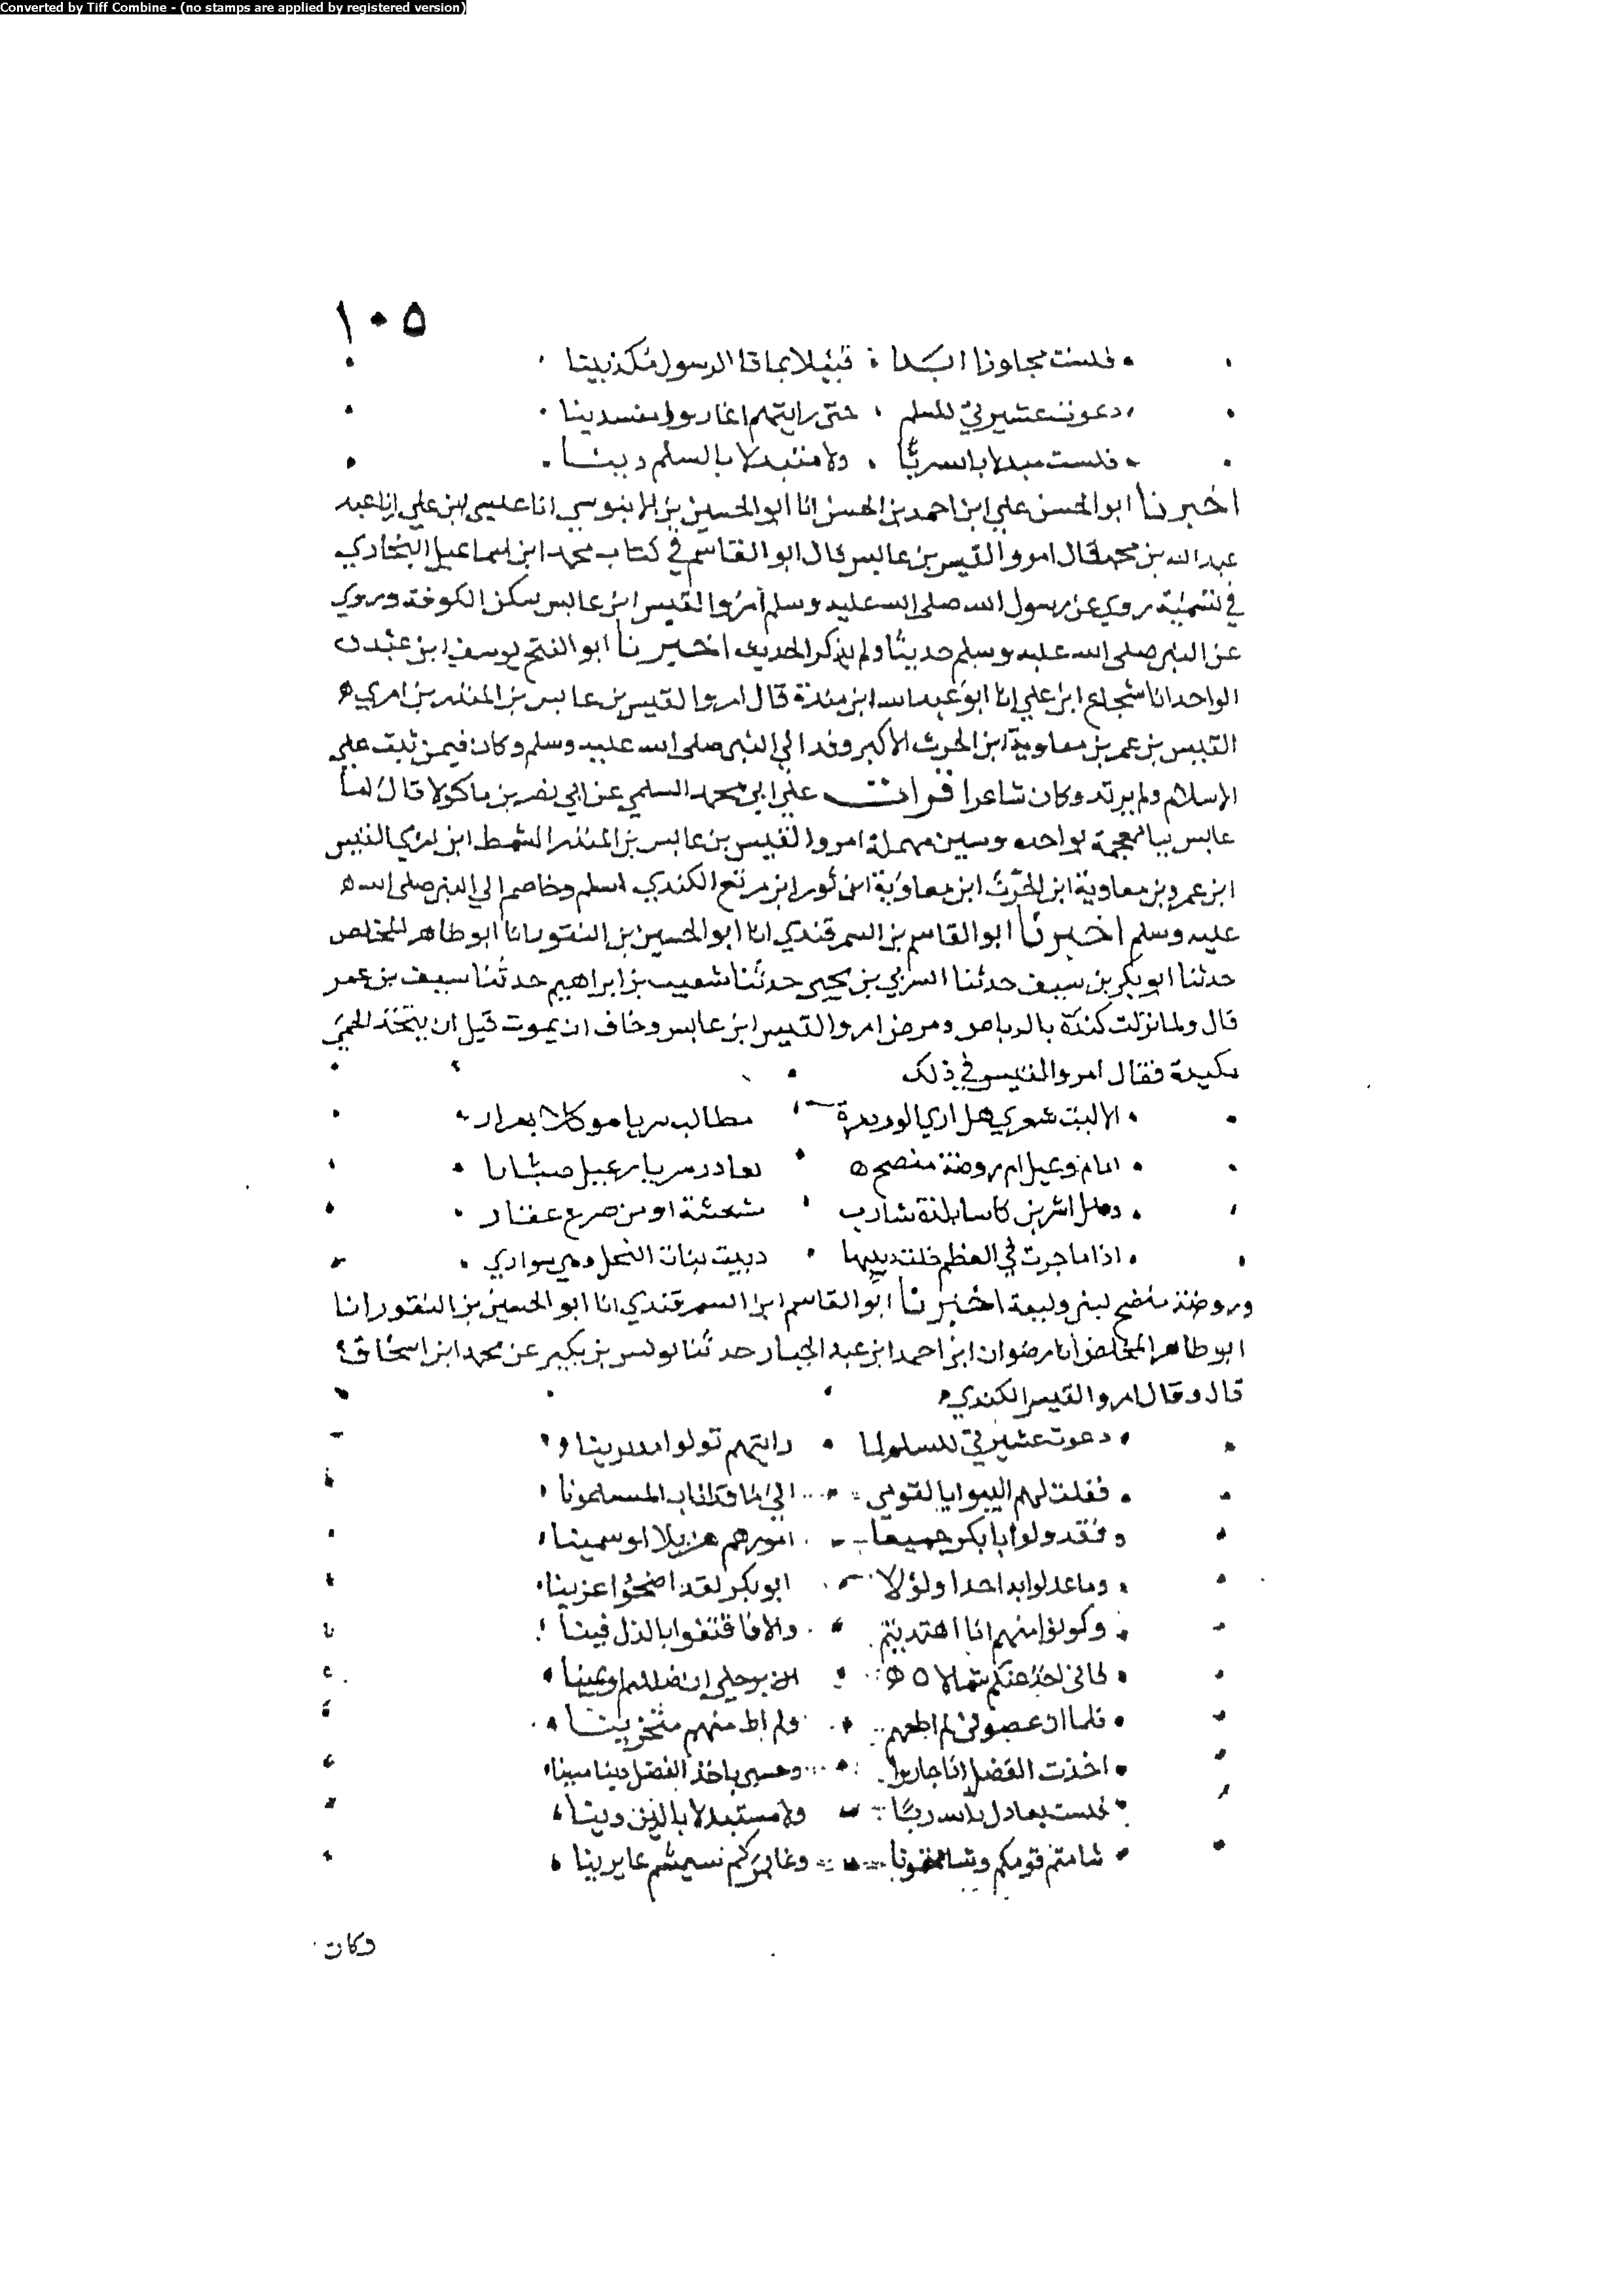 Converted by Tiff Combine - (no stamps are applied by registered version)
١٠٥
فلست مجاوزا ابدا قبيلا بما قا الرسول مكذبينا
دعوت عشيرتي للسلم حتى رايتهم اغاروا مفسدينا
فلست مبدلا بالله ربا ولا متبدلا بالسلم دينا
اخبرنا ابو الحسن علي ابن احمد بن الحسن انا ابو الحسين بن الابنوسي انا عيسى ابن علي انا عبد
عبد الله بن محمد قال امرو القيس بن عابس قال ابو القاسم في كتاب محمد ابن اسماعيل البخاري
في تسمية روي عن رسول الله صلى الله عليه وسلم امرو القيس ابن عابس سكن الكوفة وروي
عن النبي صلى الله عليه وسلم حديثا ولم يذكر الحديث اخبرنا ابو الفتح يوسف ابن عبد
الواحد انا شجاع ابن علي انا ابو عبد الله ابن مندة قال امرو القيس بن عابس بن المنذر بن امري
القيس بن عمر بن معاوية ابن الحرث الاكبر وفد الي النبي صلى الله عليه وسلم وكان فيمن ثبت علي
الاسلام ولم يرتد وكان شاعرا قرات علي ابي محمد السلمي عن ابي نصر بن ماكولا قال اما
عابس بيا معجمة بواحده وسين مهملة امرو القيس بن عابس بن المنذر الشمط ابن امري القيس
ابن عمرو بن معاوية ابن الحرث ابن معاوية ابن ثور ابن مرتع الكندي اسلم وخاصم الي النبي صلى الله
عليه وسلم اخبرنا ابو القاسم بن السمرقندي انا ابو الحسين بن النقور انا ابو طاهر المخلص
حدثنا ابو بكر بن سيف حدثنا السري بن يحيى حدثنا شعيب بن ابراهيم حدثنا سيف بن عمر
قال ولما نزلت كندة بالرياض ومرض امرو القيس ابن عابس وخاف ان يموت قبل ان يتخذ الحمي
مكيدة فقال امرو القيس في ذلك
الا ليت شعري هل اري الورد مرة مطالب سربا موكلا بعرار
امام رعيل ام روضة منصح تغادر سربا رعيل صثارا
وهل اشربن كاسا بلذة شارب مشعشة او من صرع عقار
اذا ما جرت في العظم خلت دبيبها دبيت بنات النحل وهي سواري
وروضة منضح لبني وليعة اخبرنا ابو القاسم ابن السمرقندي انا ابو الحسين بن النقور انا
ابو طاهر المخلص انا رضوان ابن احمد ابن عبد الجبار حدثنا يونس بن بكير عن محمد ابن اسحاق
قال وقال امرو القيس الكندي
دعوت عشيرتي للسلم لما رايتهم تولوا مدبرينا
فقلت لهم انيبوا يا لقومي الي ما قد اناب المسلمونا
فقد ولوا ابا بكر جميعا امورهم هزيلا او سمينا
وما عدلوا به احدا ولولا ابو بكر لقد اضحوا عزينا
وكونوا منهم انا اهتديتم والا فاقنفوا بالذل فينا
فاني اخذ عنكم شمالا ان ضللتم او يمينا
فلما ان عصوني لم اطعهم ولم اط منهم متخربينا
اخذت الفضل اذا جاروا وحسبي باخذ الفضل دينا مبينا
فلست بعادل بالله ربا ولا مستبدلا بالدين دينا
شامتم قومكم وشامتمونا وغابركم نسيشم عابرينا
وكان